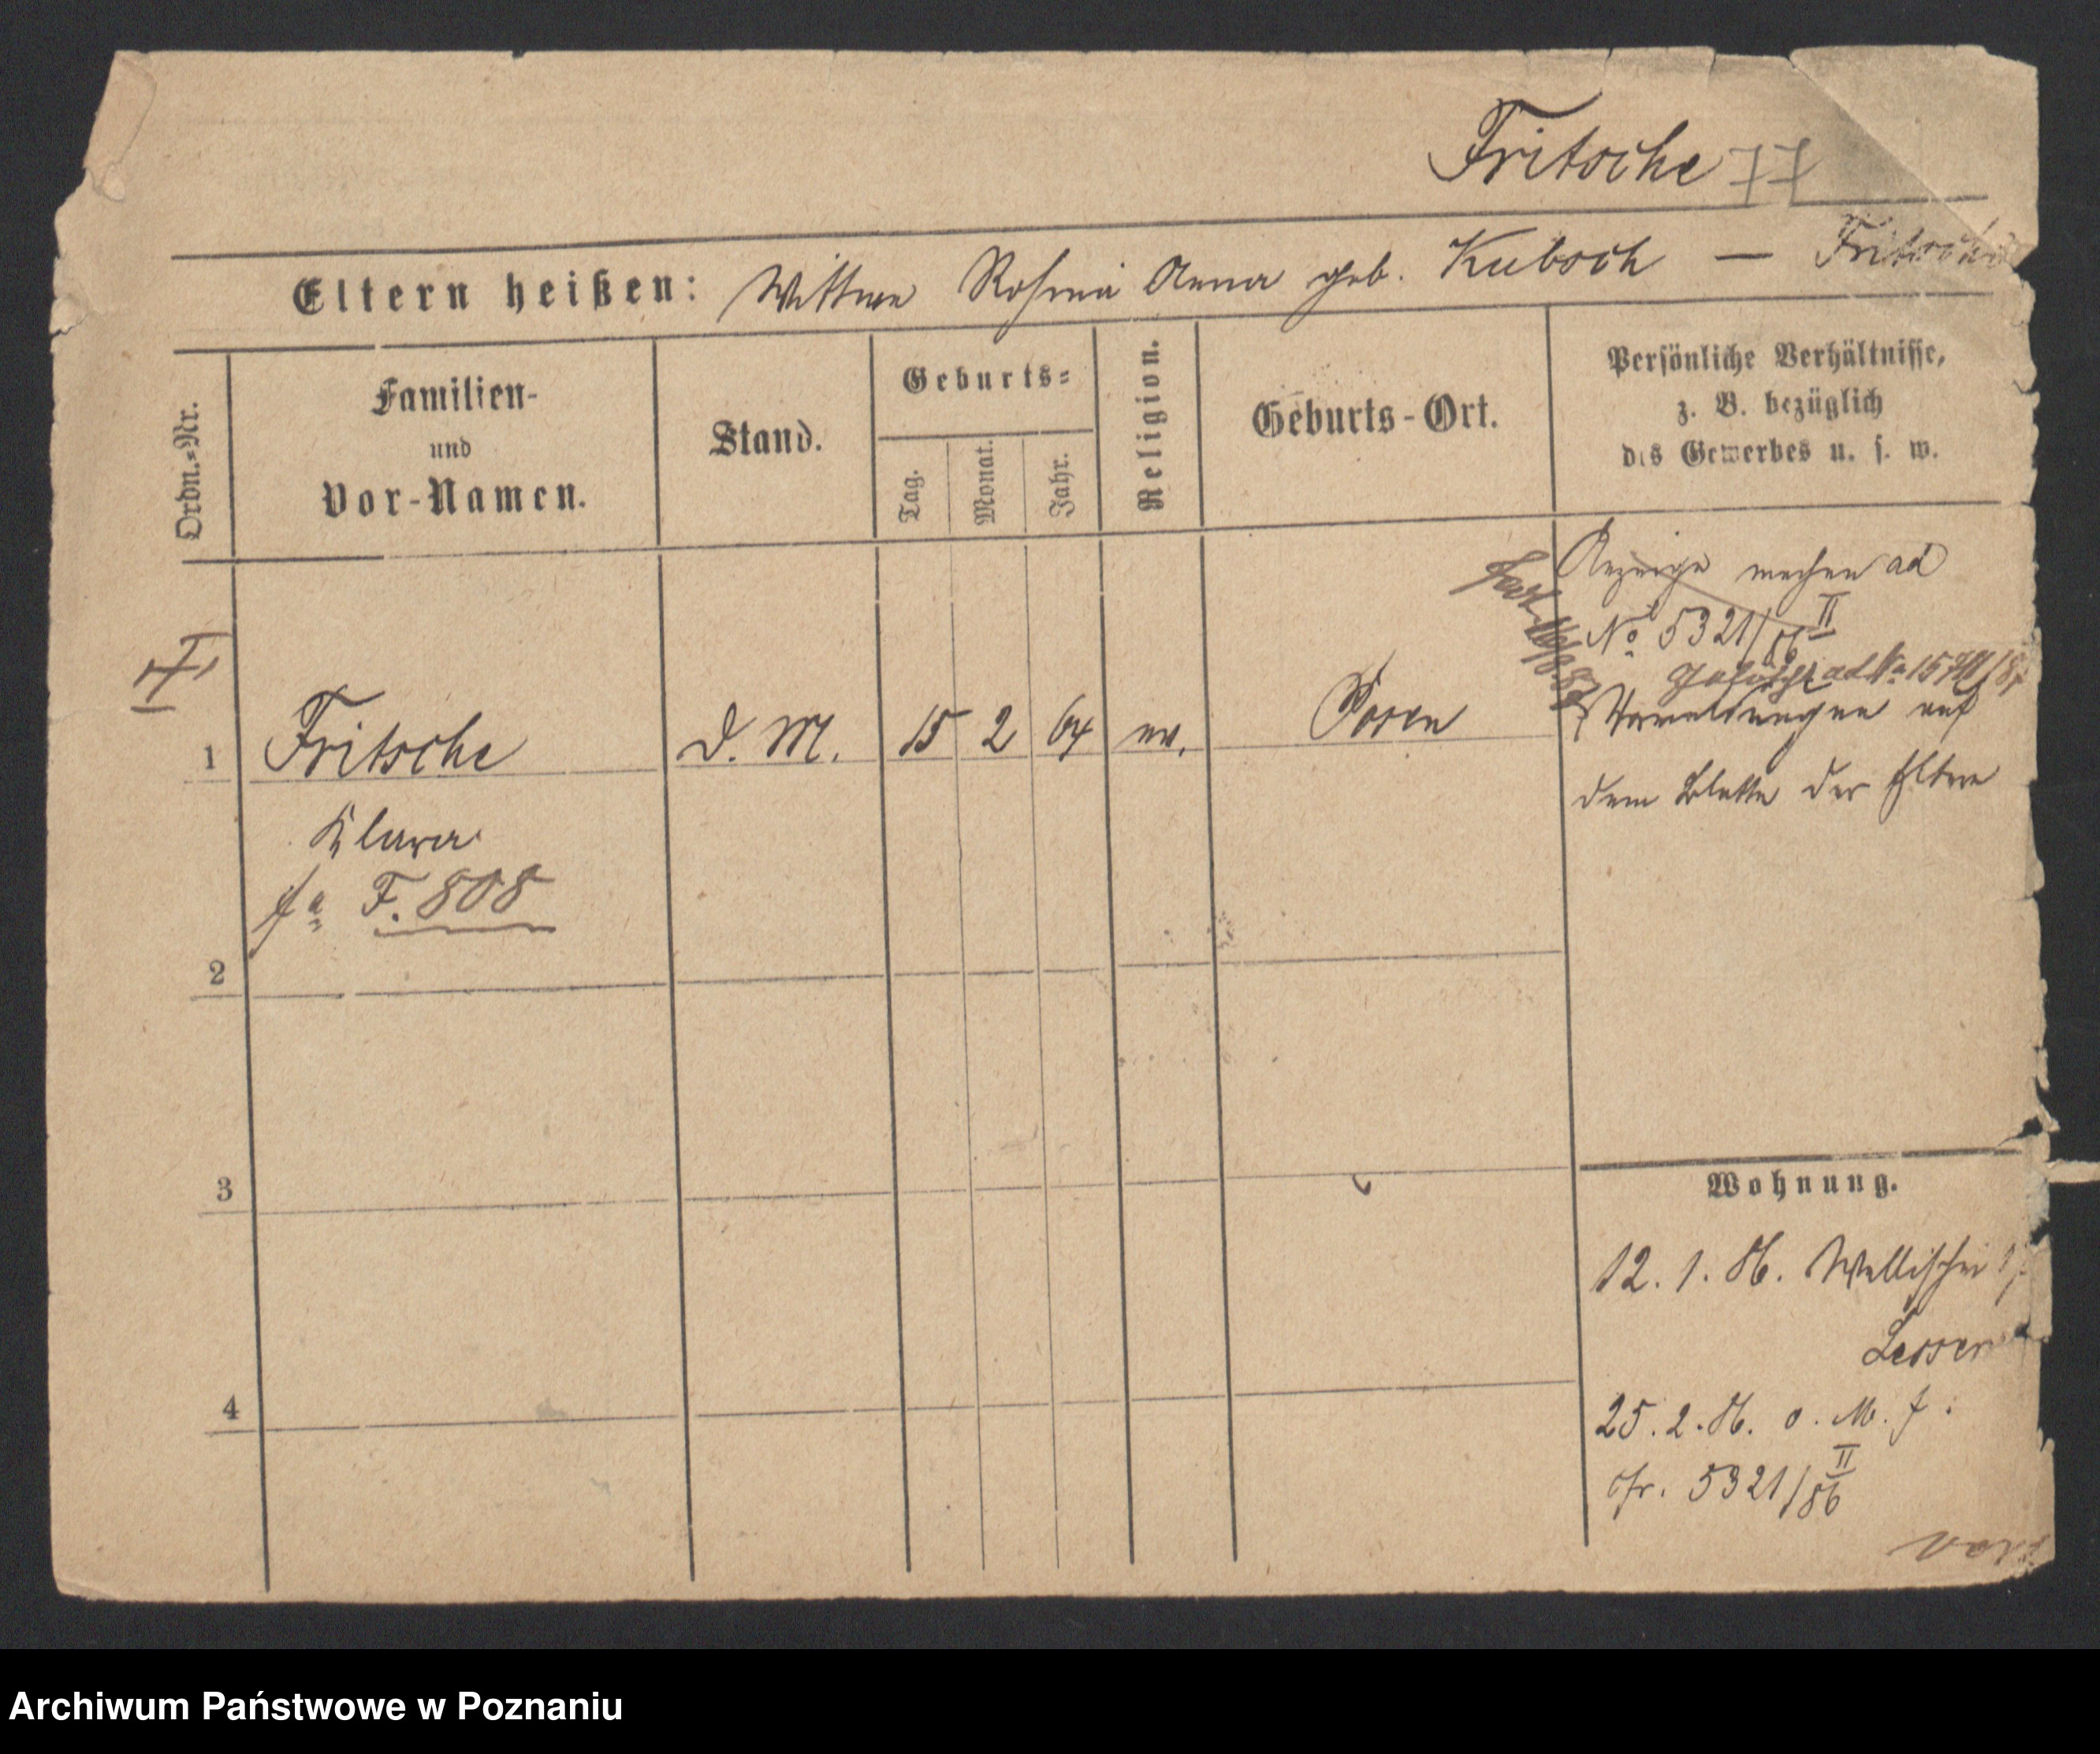 Fritsche 77
Eltern heißen: Wittwe Rosina Anna geb. Kubsch — Fritsche
Ordn.-Nr.
Familien-
und
Vor-Namen.
Stand.
Geburts-
Tag.
Monat.
Jahr.
Religion.
Geburts-Ort.
Persönliche Verhältnisse,
z. B. bezüglich
des Gewerbes u. s. w.
Anzeige machen ad
No 5321/86 II
ad No
1 Fritsche D. M. 15 2 64 ev. Posen
auf
dem Blatte der Eltern
Klara
F. 808
2
3
4
Wohnung.
12. 1. 86. Wallischei
Lesser
25. 2. 86. o. M. f.
cfr. 5321/86 II
Archiwum Państwowe w Poznaniu